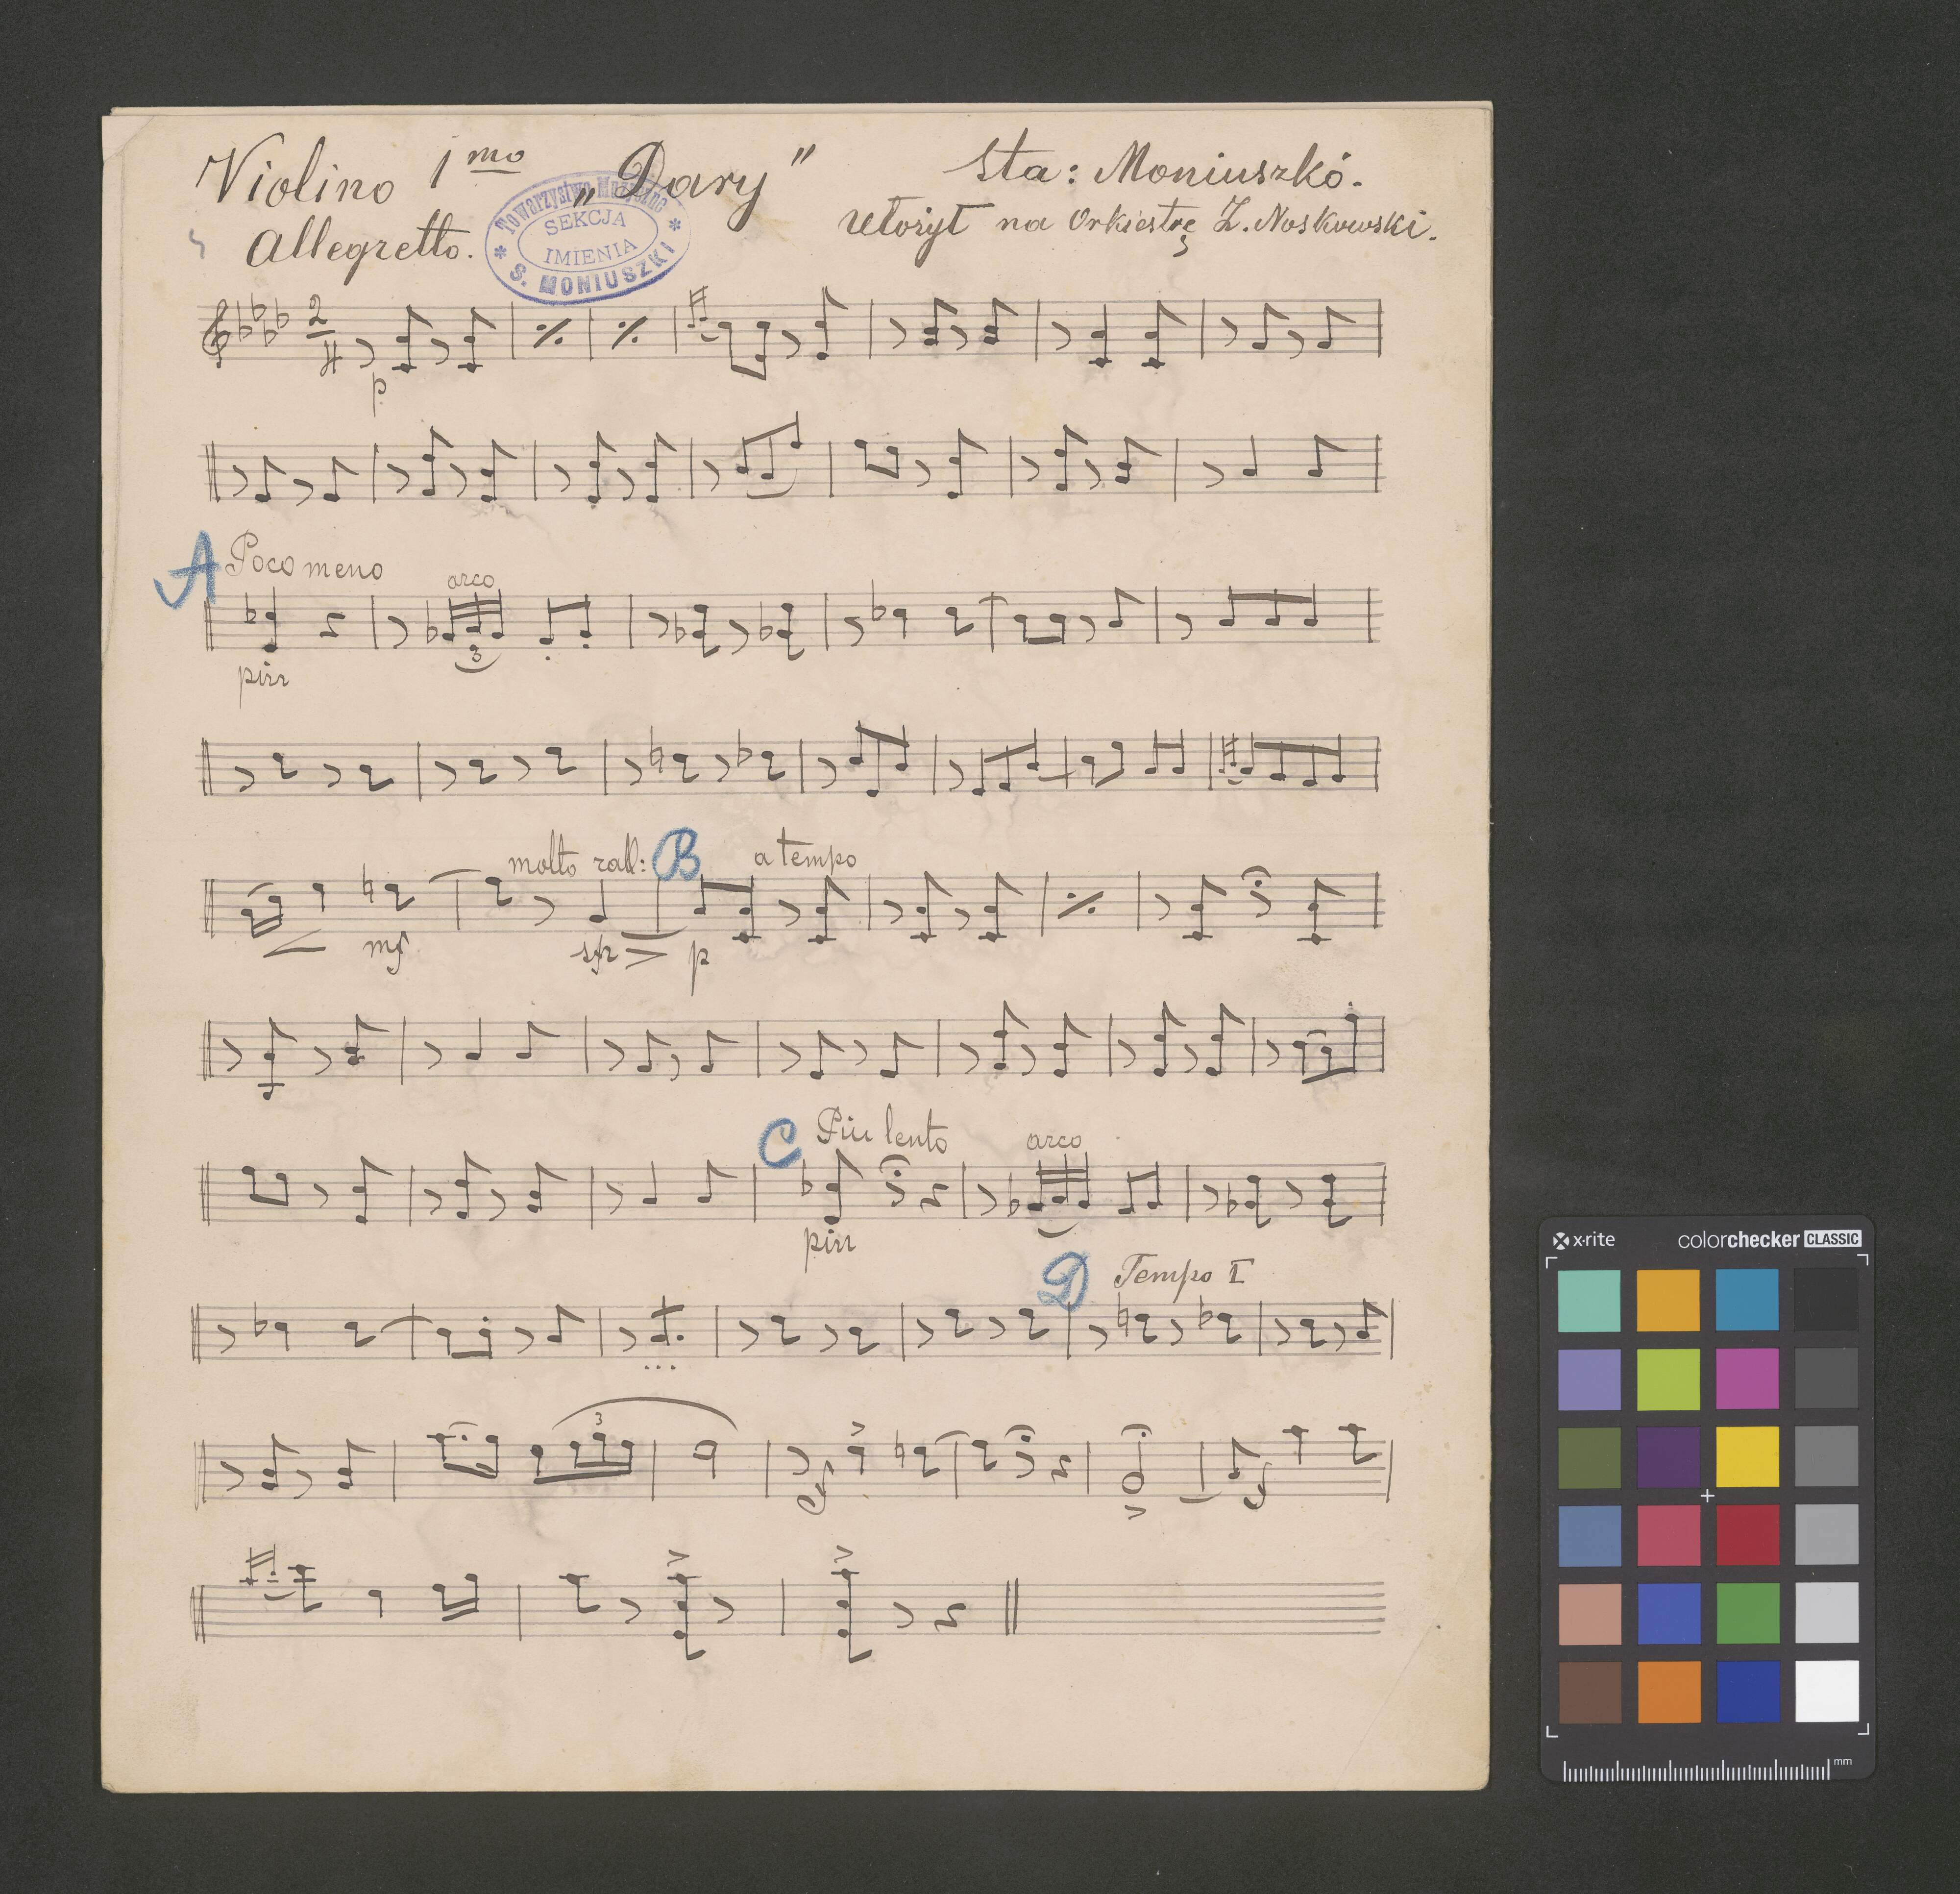 Violino 1mo „Dary" Sta: Moniuszkó.
Ułożył na Orkiestrę Z. Noskowski.
Allegretto.
Towarzystwo Muzyczne
SEKCJA
IMIENIA
S. MONIUSZKI
2
4
p
A Poco meno
arco
3
pizz
molto rall: B a tempo
mf sfp p
C Piu lento arco
pizz
D Tempo I
3
x·rite colorchecker CLASSIC
mm